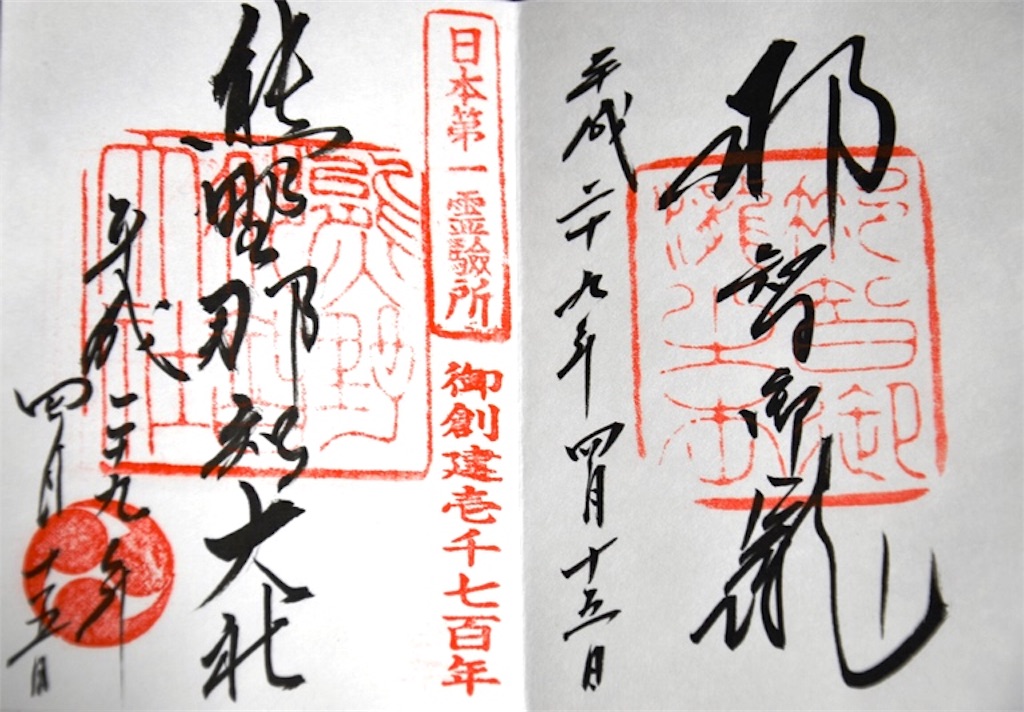 那智御瀧
平成二十九年四月十五日
日本第一霊驗所
御創建壱千七百年
熊野那智大社
平成二十九年
四月十五日
熊野
那智
大社